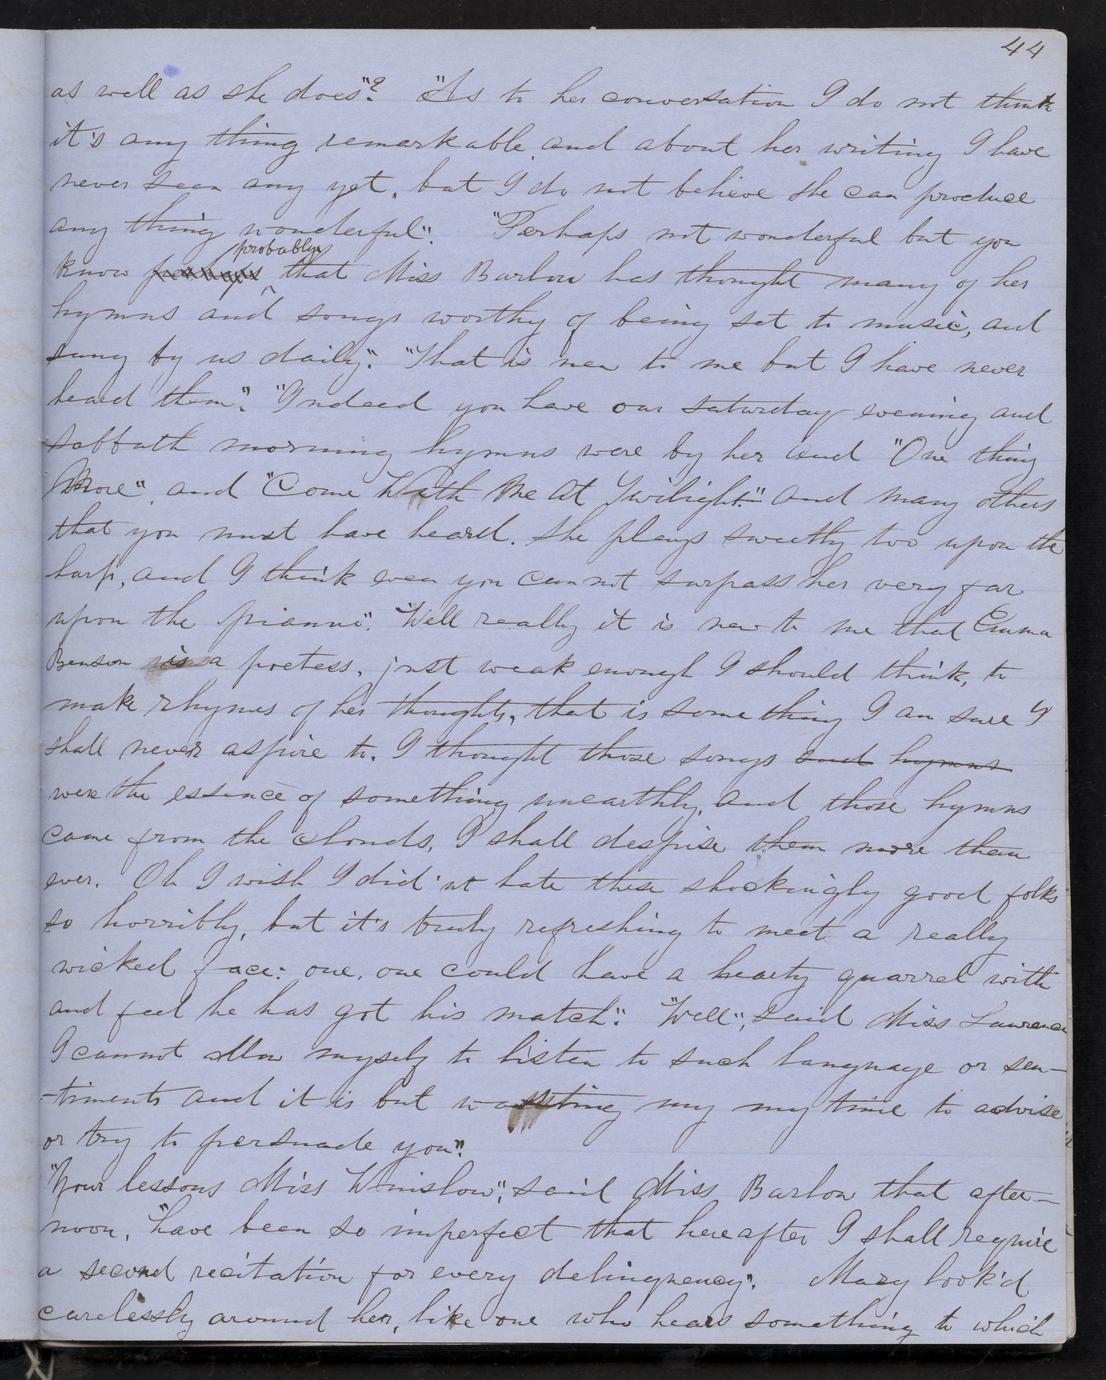 44
as well as she does"? "As to her conversation I do not think
it's any thing remarkable, and about her writing I have
never seen any yet, but I do not believe she can produce
any thing wonderful". "Perhaps not wonderful but you
probably
know perhaps that Miss Barlow has thought many of her
hymns and songs worthy of being set to music, and
sung by us daily". "That is new to me but I have never
heard them". "Indeed you have our saturday evening and
sabbath morning hymns were by her and "One thing
More", and "Come With Me At Twilight". and many others
that you must have heard. She plays sweetly too upon the
harp, and I think even you can not surpass her very far
upon the pianni". "Well really it is new to me that Emma
Benson is a poetess, just weak enough I should think, to
make rhymes of her thoughts, that is some thing I am sure I
shall never aspire to. I thought those songs and hymns
were the essence of something unearthly, and those hymns
came from the clouds, I shall despise them more than
ever. Oh I wish I did'nt hate these shockingly good folks
so horribly, but it's truly refreshing to meet a really
wicked face: one, one could have a hearty quarrel with
and feel he has got his match". "Well", said Miss Lawrence
I cannot allow myself to listen to such language or sen-
-timents and it is but wasting my my time to advise
or try to persuade you".
"Your lessons Miss Winslow", said Miss Barlow that after-
noon, "have been so imperfect that hereafter I shall require
a second recitation for every delinquency". Mary look'd
carelessly around her, like one who hears something to which